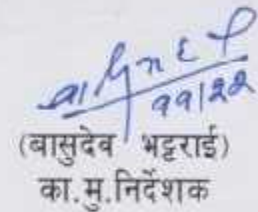 ११।२२
(बासुदेव भट्टराई)
का.मु.निर्देशक